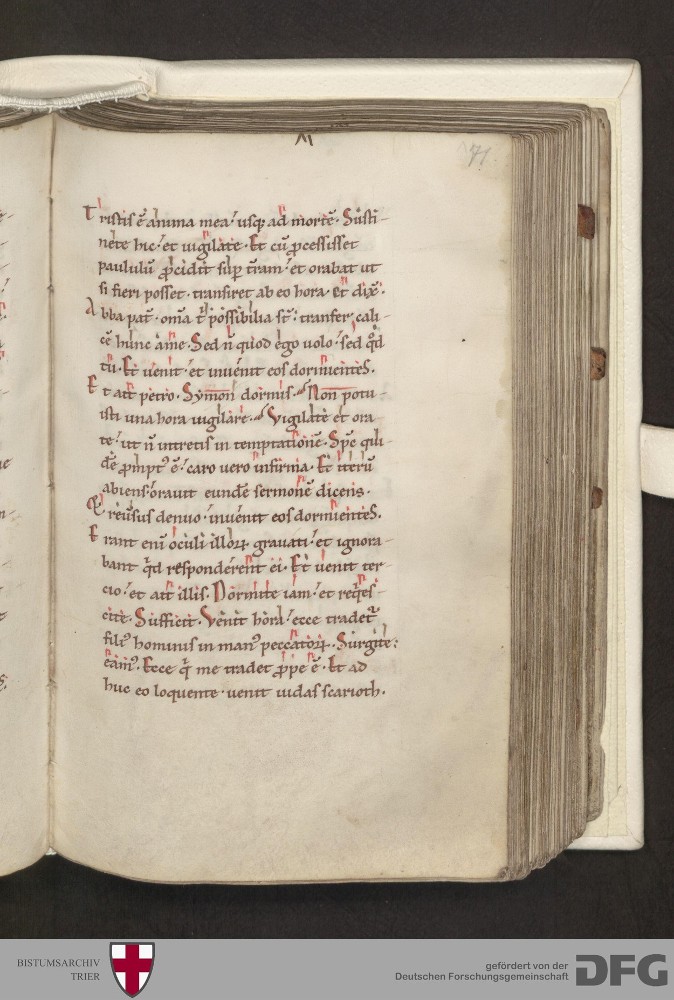 71
Tristis ē anima mea / usq; ad mortē. Susti-
nete hic / et uigilate. Et cū pcessisset
paululū pcidit sup tr̄am / et orabat ut
si fieri posset. transiret ab eo hora. et dix̄.
Abba pat̄. om̄a t̄ possibilia st̄. transfer cali-
cē hunc a me. Sed n̄ quod ego uolo / sed qd̄
tu. Et uenit / et inuenit eos dormientes.
Et ait petro. Symon dormis. Non potu-
isti una hora uigilare. Vigilate et ora
te / ut n̄ intretis in temptationē. Spc̄ qui-
dē prompt' ē / caro uero infirma. Et iterū
abiens / orauit eundē sermonē dicens.
Et reūsus denuo / inuenit eos dormientes.
Erant eni oculi illoꝝ grauati / et ignora-
bant qd̄ responderent ei. Et uenit ter
cio / et ait illis. Dormite iam / et reqes-
cite. Sufficit. Venit hora / ecce tradet
fili' hominis in man' peccatoꝝ. Surgite:
eam'. Ecce q me tradet ppe ē. Et ad
huc eo loquente. uenit iudas scarioth.
BISTUMSARCHIV
TRIER
gefördert von der
Deutschen Forschungsgemeinschaft
DFG